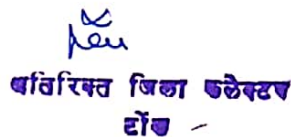 अतिरिक्त जिला कलैक्टर
टोंक